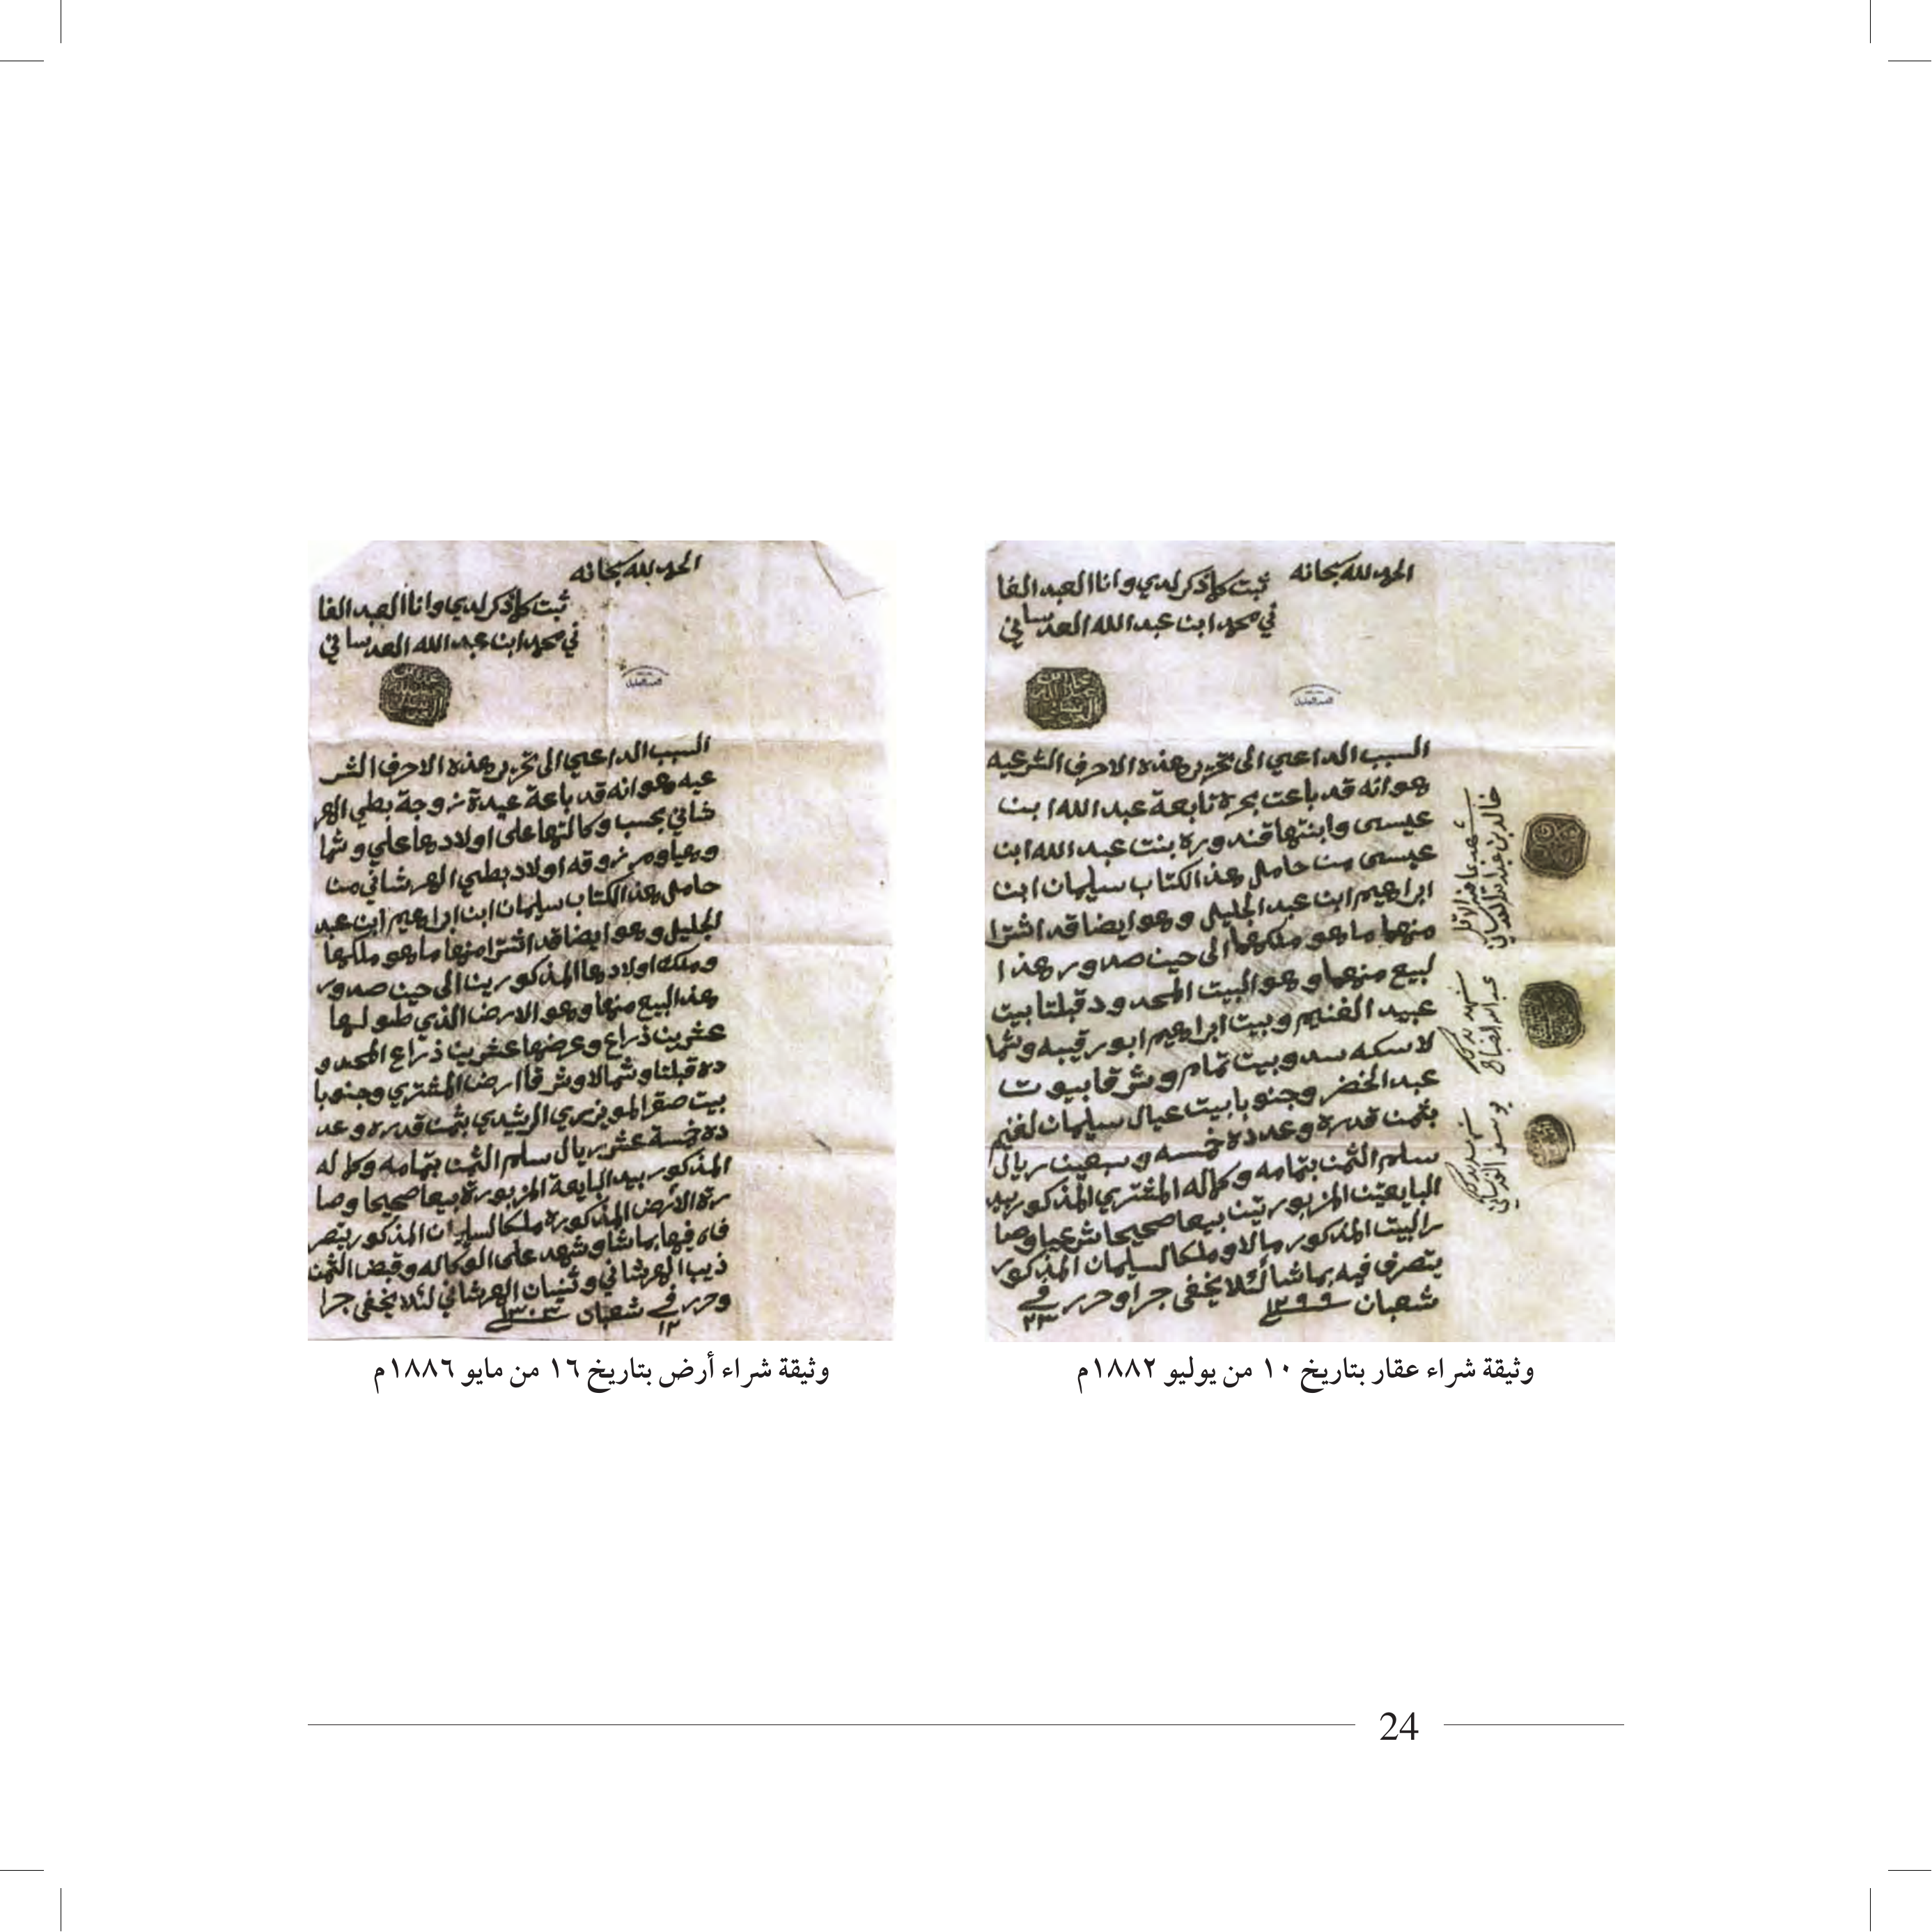 الحمد لله سبحانه
ثبت ما ذكر لدي وانا العبد الفا
ني محمد ابن عبدالله العدساني
السبب الداعي الى تحرير هذه الاحرف الشرعيه
هو انه قد باعت بحرة تابعة عبدالله ابن
عيسى وابنتها قندورة بنت عبدالله ابن
عيسى من حامل هذا الكتاب سليمان ابن
ابراهيم ابن عبدالجليل وهو ايضا قد اشترا
منهما ما هو ملكهما الى حين صدور هذا
لبيع منهما وهو البيت المحدود قبلتا بيت
عبيد الغنيم وبيت ابراهيم ابورقيبه وشما
لا سكه سد وبيت تمام وشرقا بيوت
عبدالخضر وجنوبا بيت عيال سليمان لغنيم
بثمن قدره وعدده خمسه وسبعين ريال
سلم الثمن بتمامه وكماله المشتري المذكور بيد
البايعتين المزبورتين بيعا صحيحا شرعيا وصا
ر البيت المذكور مالا وملكا لسليمان المذكور
يتصرف فيه بما شا لئلا يخفى جرا وحرر في
٢٣ شعبان ١٢٩٩
شهد بذلك
وثيقة شراء عقار بتاريخ ١٠ من يوليو ١٨٨٢م
الحمد لله سبحانه
ثبت ما ذكر لدي وانا العبد الفا
ني محمد ابن عبدالله العدساني
السبب الداعي الى تحرير هذه الاحرف الشر
عيه وهو انه قد باعة عيدة زوجة بطي العر
شاني بحسب وكالتها على اولادها علي وشما
وهيا ومرزوقه اولاد بطي العرشاني من
حامل هذا الكتاب سليمان ابن ابراهيم ابن عبد
الجليل وهو ايضا قد اشترا منها ما هو ملكها
وملك اولادها المذكورين الى حين صدور
هذا البيع منها وهو الارض الذي طولها
عشرين ذراع وعرضها عشرين ذراع المحدو
ده قبلتا وشمالا وشرقا ارض المشتري وجنوبا
بيت صقر المويزري الرشيدي بثمن قدره وعد
ده خمسة عشر ريال سلم الثمن بتمامه وكماله
المذكور بيد البايعة المزبورة بيعا صحيحا وصا
رة الارض المذكورة ملكا لسليمان المذكور يتصر
ف فيها بما شا وشهد على الوكاله وقبض الثمن
ذيب العرشاني وثنيان العرشاني لئلا يخفى جرا
وحرر في ١٢ شعبان ١٣٠٣
وثيقة شراء أرض بتاريخ ١٦ من مايو ١٨٨٦م
24